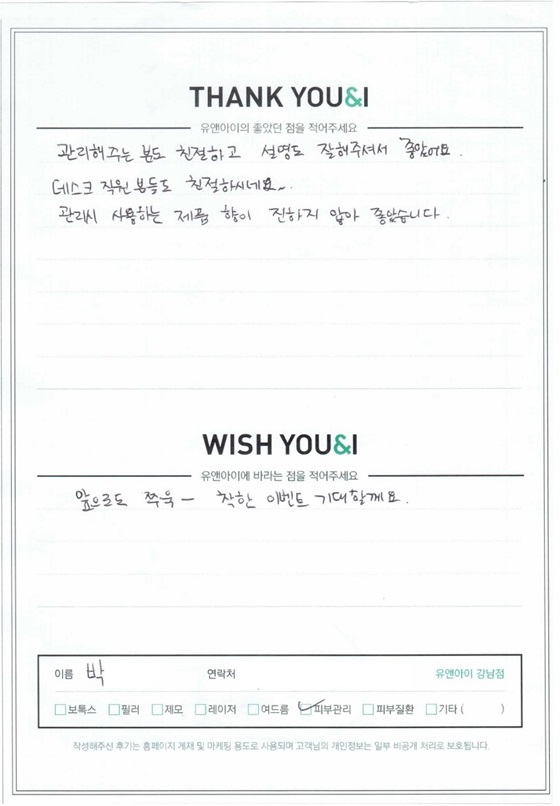 THANK YOU&I
유앤아이의 좋았던 점을 적어주세요
관리해주는 분도 친절하고 설명도 잘해주셔서 좋았어요.
데스크 직원분들도 친절하시네요~.
관리시 사용하는 제품 향이 진하지 않아 좋았습니다.
WISH YOU&I
유앤아이에 바라는 점을 적어주세요
앞으로도 쭈욱 — 착한 이벤트 기대할게요.
이름 박 연락처 유앤아이 강남점
보톡스 필러 제모 레이저 여드름 피부관리 피부질환 기타 ( )
작성해주신 후기는 홈페이지 게재 및 마케팅 용도로 사용되며 고객님의 개인정보는 일부 비공개 처리로 보호됩니다.